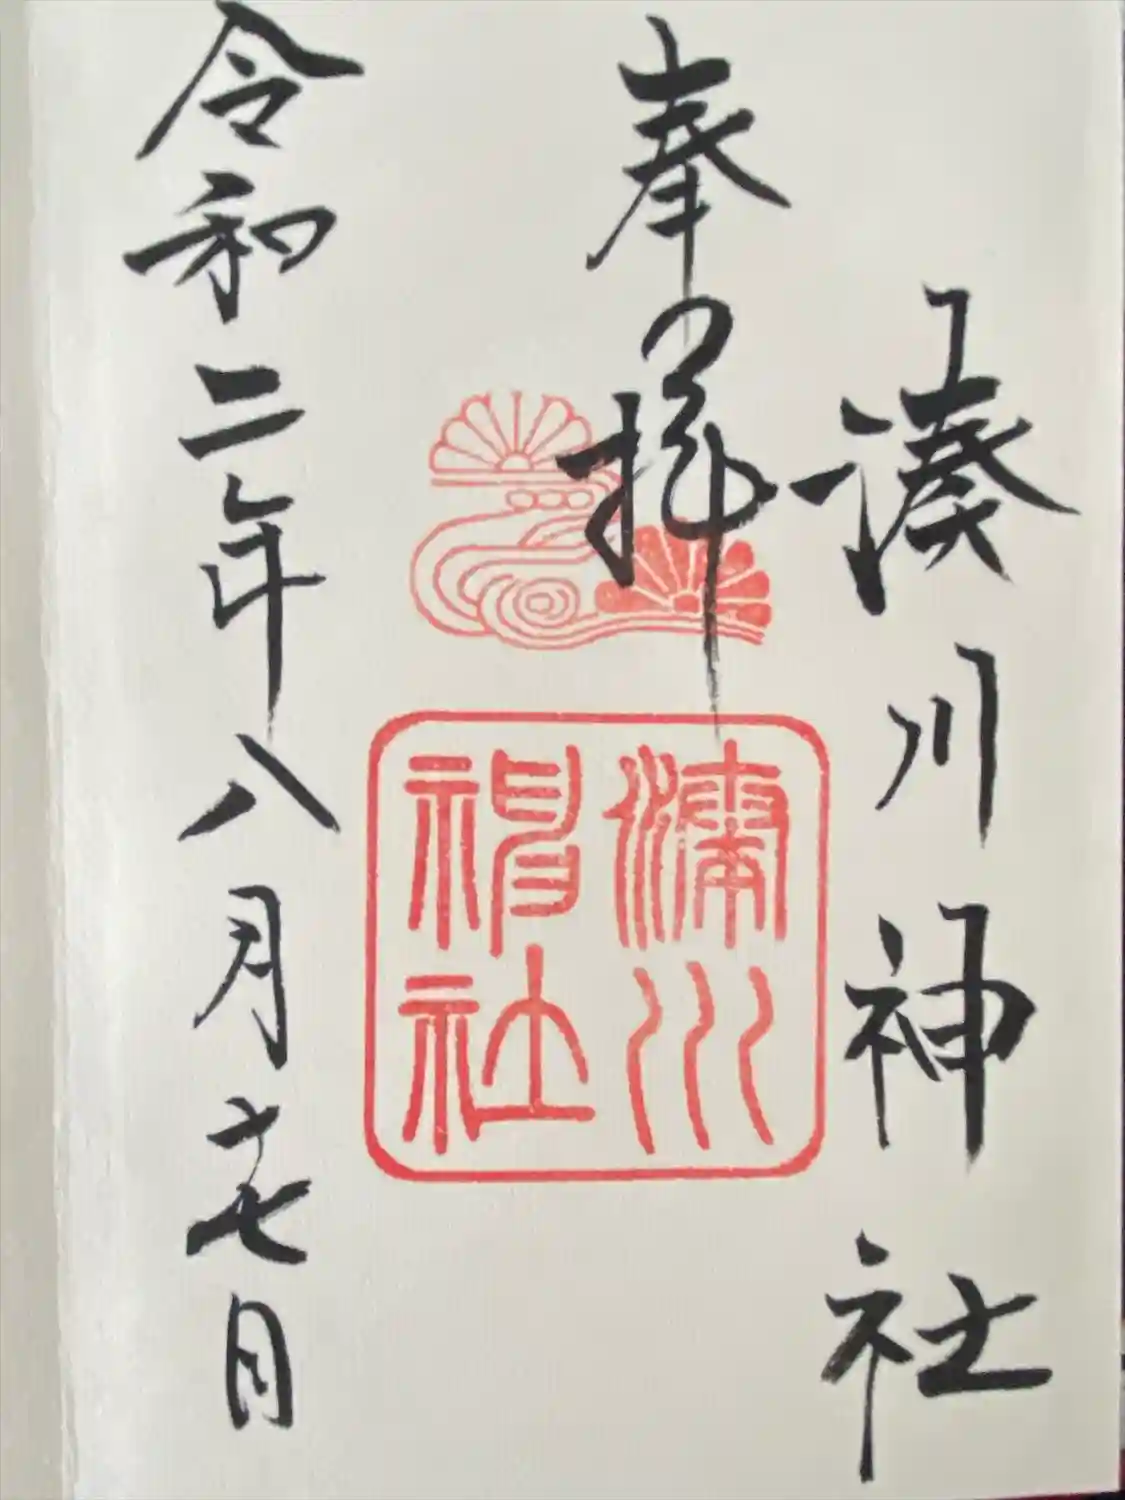 湊川神社
奉拝
湊川
神社
令和二年八月十七日